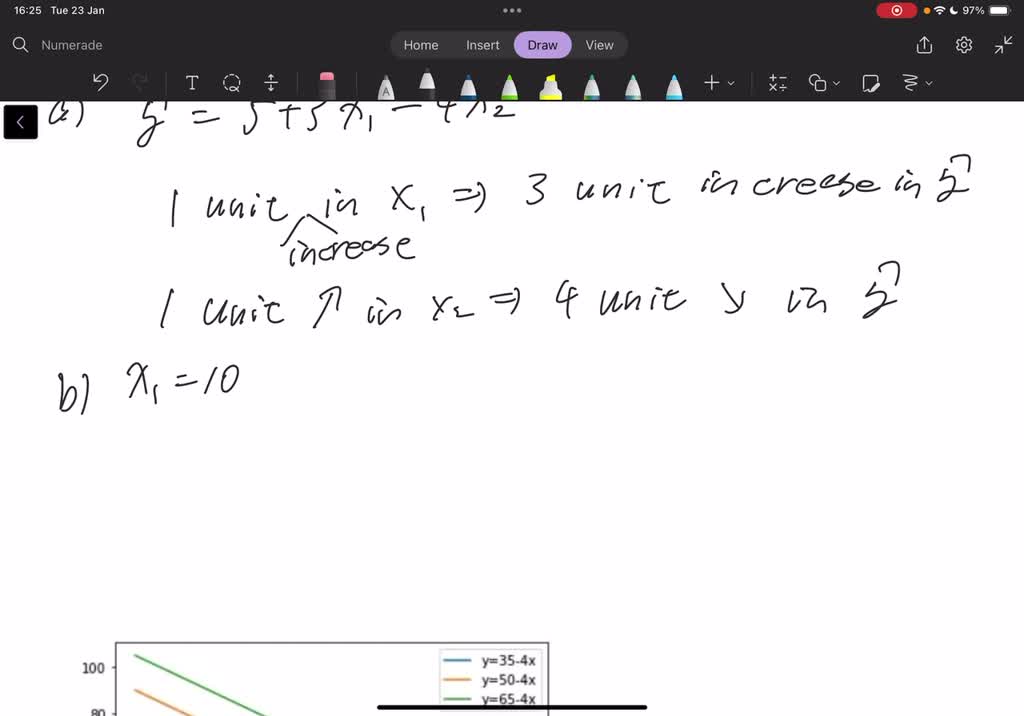 16:25 Tue 23 Jan
97%
Numerade
Home Insert Draw View
T
A
a) ŷ = 5 + 3 x₁ - 4 x₂
1 unit in x₁ ⇒ 3 unit increase in ŷ
increase
1 unit ↑ in x₂ ⇒ 4 unit ↘ in ŷ
b) x₁ = 10
100
80
y=35-4x
y=50-4x
y=65-4x